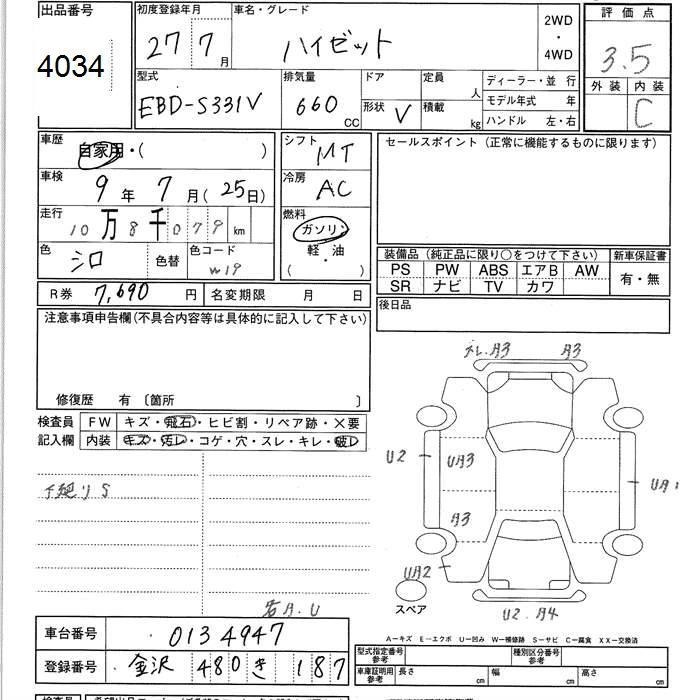 出品番号
4034
初度登録年月
27 7月
車名・グレード
ハイゼット
2WD
・
4WD
評価点
3.5
外装 内装
C
型式
EBD-S331V
排気量
660 cc
ドア
形状 V
定員 人
積載 kg
ディーラー・並 行
モデル年式 年
ハンドル 左・右
車歴
自家用・( )
車検
9年 7月(25日)
走行
10万8千079km
色
シロ
色替
色コード
W19
シフト
MT
冷房
AC
燃料
ガソリン
軽・油
( )
セールスポイント(正常に機能するものに限ります)
装備品(純正品に限り○をつけて下さい)
PS PW ABS エアB AW
SR ナビ TV カワ
新車保証書
有・無
R券 7,690円
名変期限 月 日
後日品
注意事項申告欄(不具合内容等は具体的に記入して下さい)
修復歴 有〔箇所 〕
検査員
記入欄
FW キズ・飛石・ヒビ割・リペア跡・×要
内装 キズ・汚レ・コゲ・穴・スレ・キレ・破レ
下廻りS
若A.U
A3 A3
U2 UA3
UA1
A3
UA2
スペア
U2.A4
A-キズ E-エクボ U-凹み W-補修跡 S-サビ C-腐食 XX-交換済
車台番号
0134947
登録番号
金沢 480 き 187
型式指定番号
参考
種別区分番号
参考
車庫証明用
参考
長さ cm
幅 cm
高さ cm